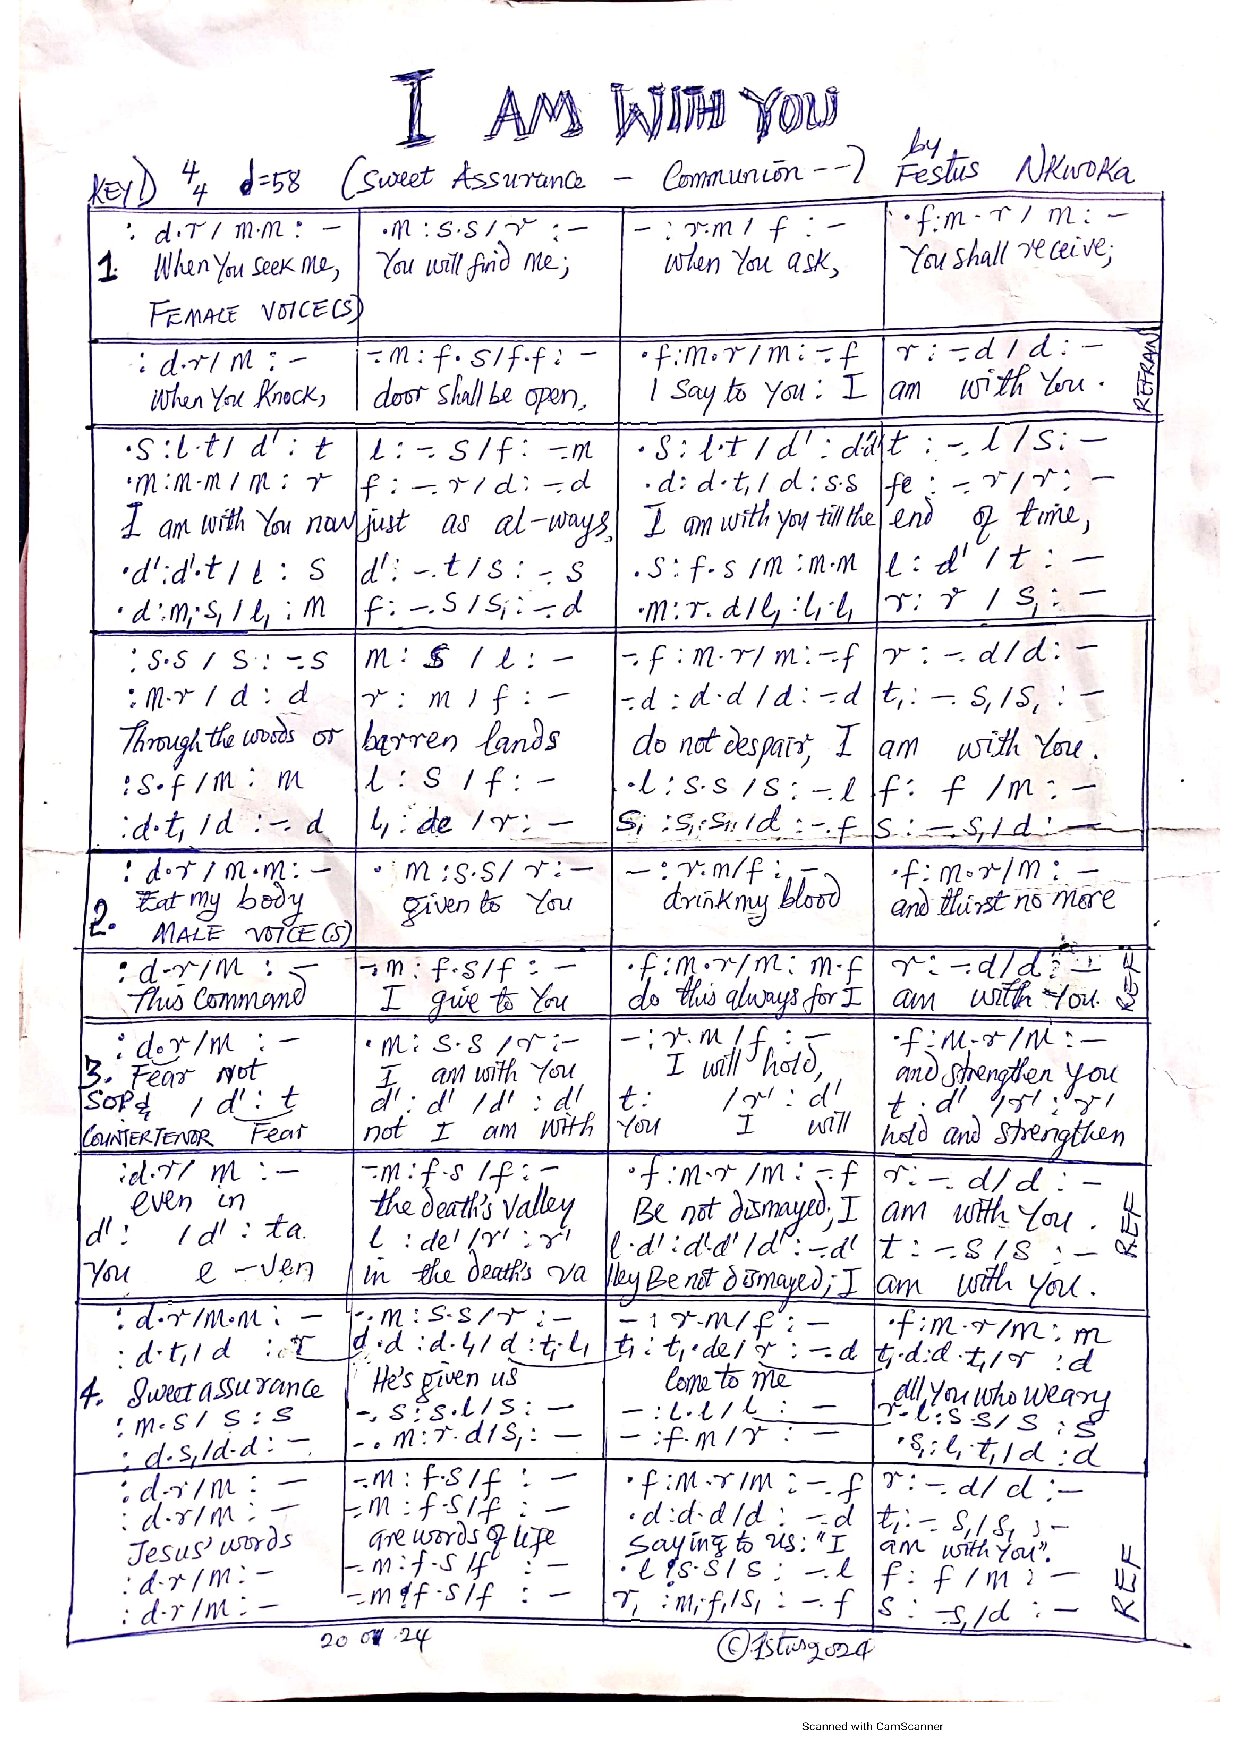 I AM WITH YOU
KEY D 4/4 d=58 (Sweet Assurance – Communion --) by Festus NKWOKA
: d.r / m.m : – .m : s.s / r : – – : r.m / f : – .f:m.r / m : –
1. When You seek me, You will find me; when You ask, You shall receive;
FEMALE VOICE(S)
: d.r / m : – –.m : f.s / f.f : – .f:m.r / m : –.f r : –.d / d : –
When You Knock, door shall be open. I say to You: I am with You.
REFRAIN
.s : l.t / d' : t l : –.s / f : –.m .s : l.t / d' : d'd' t : –.l / s : –
.m:m.m / m : r f : –.r / d : –.d .d : d.t, / d : s.s fe : –.r / r : –
I am with You now just as al-ways, I am with you till the end of time,
.d':d'.t / l : s d' : –.t / s : –.s .s : f.s / m : m.m l : d' / t : –
.d:m,.s, / l, : m f : –.s / s, : –.d .m : r.d / l, : l,.l, r : r / s, : –
: s.s / s : –.s m : s / l : – –.f : m.r / m : –.f r : –.d / d : –
: m.r / d : d r : m / f : – –.d : d.d / d : –.d t, : –.s, / s, : –
Through the woods or barren lands do not despair, I am with You.
: s.f / m : m l : s / f : – .l : s.s / s : –.l f : f / m : –
: d.t, / d : –.d l, : de / r : – s, : s,.s, / d : –.f s : –s, / d : –
: d.r / m.m : – . m : s.s / r : – – : r.m / f : – .f : m.r / m : –
2. Eat my body given to You drink my blood and thirst no more
MALE VOICE(S)
: d.r / m : – –.m : f.s / f : – .f : m.r / m : m.f r : –.d / d : –
This Command I give to You do this always for I am with You.
REF
: d.r / m : – .m : s.s / r : – – : r.m / f : – .f : m.r / m : –
3. Fear not I am with You I will hold, and strengthen you
SOP & / d' : t d' : d' / d' : d' t : / r' : d' t : d' / r' : r'
COUNTERTENOR Fear not I am with You I will hold and strengthen
: d.r / m : – –.m : f.s / f : – .f : m.r / m : –.f r : –.d / d : –
even in the death's valley Be not dismayed; I am with You.
d' : / d' : ta l : de' / r' : r' l.d' : d'.d' / d' : –.d' t : –.s / s : –
You e-ven in the death's va lley Be not dismayed; I am with You.
REF
: d.r / m.m : – –.m : s.s / r : – – : r.m / f : – .f : m.r / m : m
: d.t, / d : r d.d : d.l, / d : t,.l, t, : t,.de / r : –.d t,.d : d.t, / r : d
4. Sweet assurance He's given us Come to me all You who weary
: m.s / s : s –.s : s.l / s : – – : l.l / l : – r.l : s.s / s : s
: d.s, / d.d : – –.m : r.d / s, : – – : f.m / r : – .s, : l,.t, / d : d
: d.r / m : – –.m : f.s / f : – .f : m.r / m : –.f r : –.d / d : –
: d.r / m : – –.m : f.s / f : – .d : d.d / d : –.d t, : –.s, / s, : –
Jesus' words are words of life Saying to us: "I am with You".
: d.r / m : – –.m : f.s / f : – .l : s.s / s : –.l f : f / m : –
: d.r / m : – –.m : f.s / f : – r, : m,.f, / s, : –.f s : –s, / d : –
REF
20 24
© 2024
Scanned with CamScanner